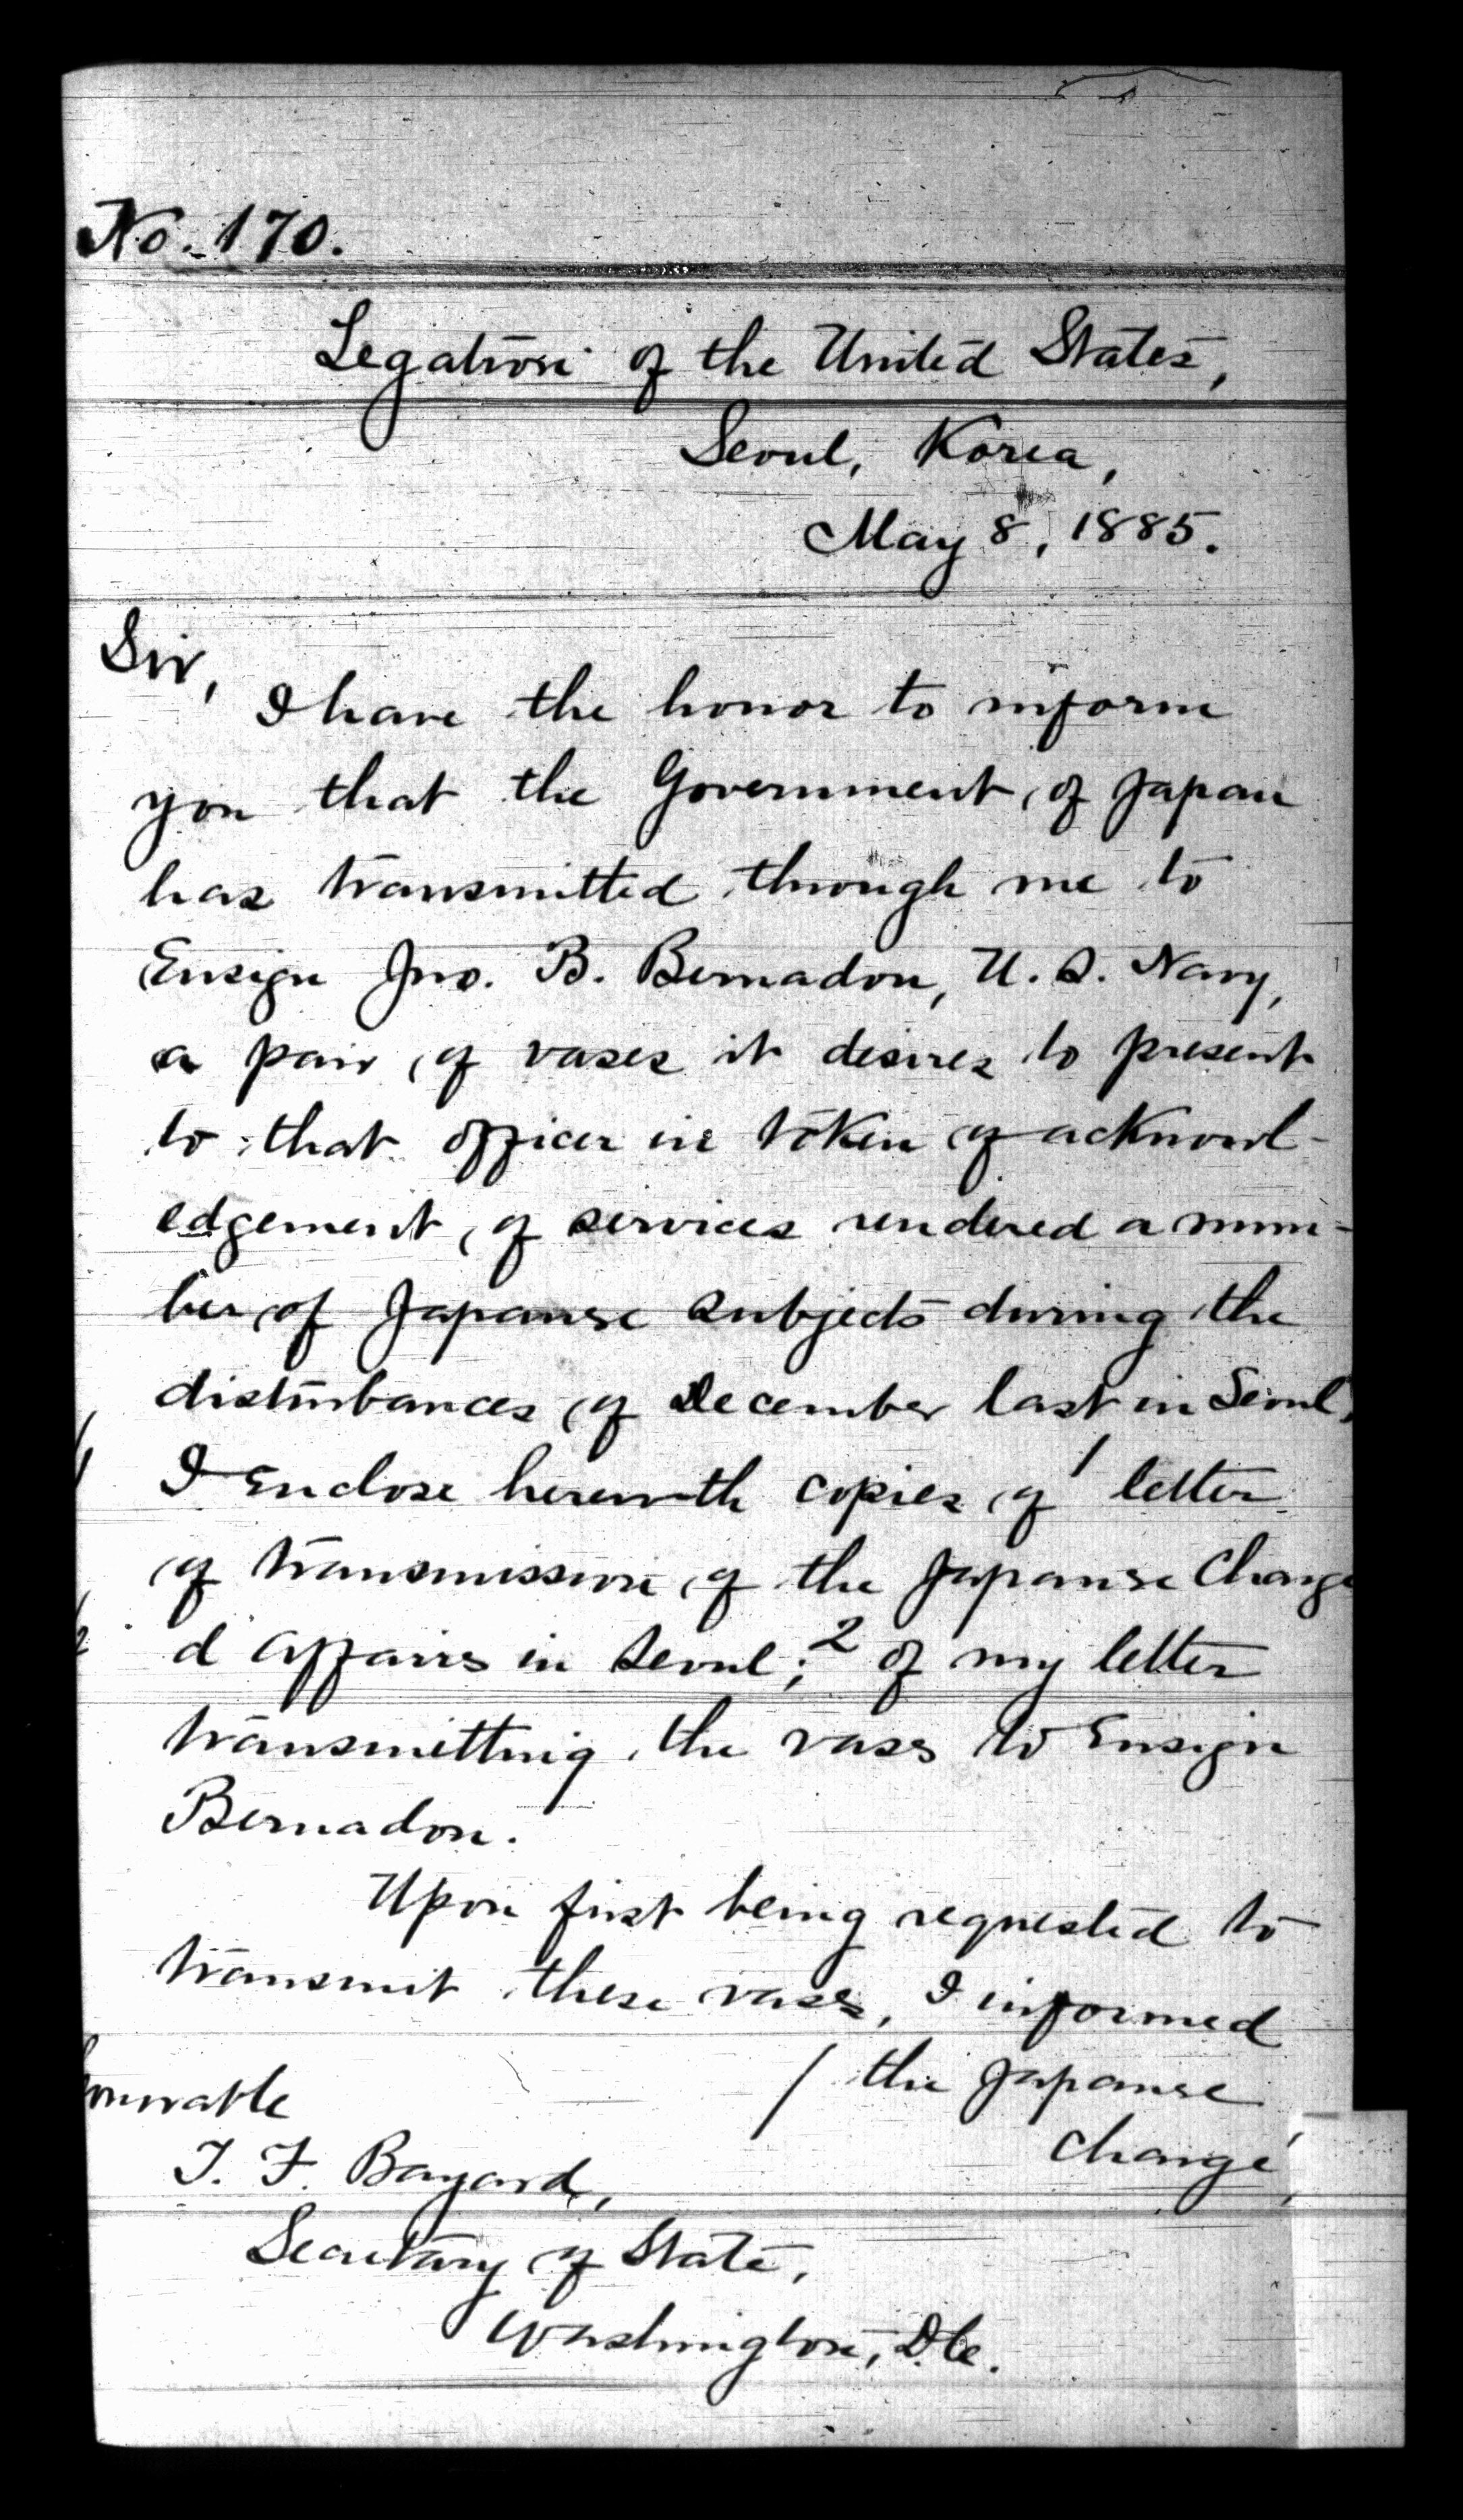 No. 170.
Legation of the United States,
Seoul, Korea,
May 8, 1885.
Sir,
I have the honor to inform
you that the Government of Japan
has transmitted through me to
Ensign Jno. B. Bernadou, U. S. Navy,
a pair of vases it desires to present
to that officer in token of acknowl-
edgement of services rendered a num-
ber of Japanese subjects during the
disturbances of December last in Seoul.
I Enclose herewith copies of 1 letter
of transmission of the Japanese Charge
d'Affairs in Seoul; 2 of my letter
transmitting the vases to Ensign
Bernadou.
Upon first being requested to
transmit these vases, I informed
/ the Japanese
Chargé,
onorable
T. F. Bayard,
Secretary of State,
Washington, D.C.